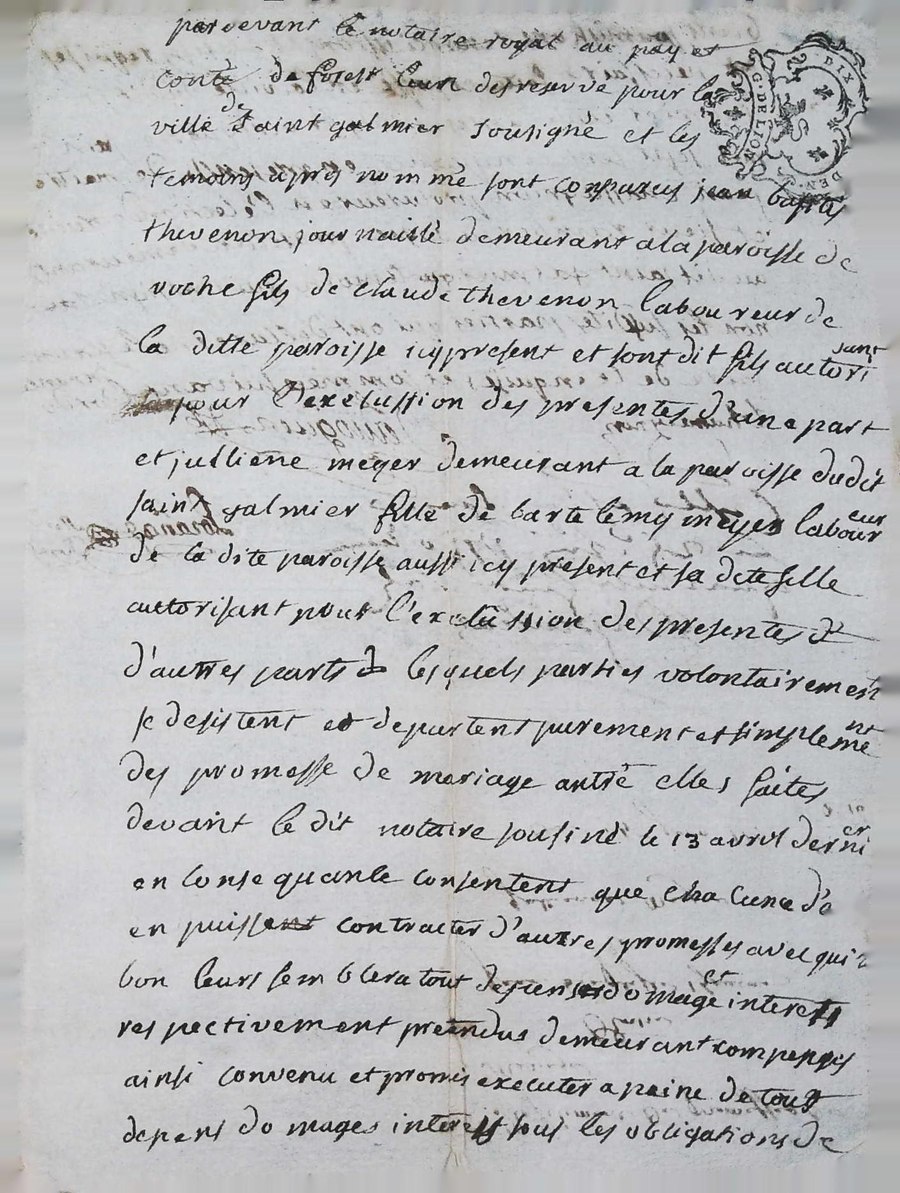 pardevant le notaire royal au pay et
conté de forest lun des reserve pour la
ville de saint galmier sousigné et les
temoins apres nommé sont comparus jean baptiste
thevenon journaillé demeurant a la paroisse de
voche fils de claude thevenon laboureur de
la ditte paroisse icy present et sont dit fils autorisant
pour l'exelussion des presentes d'une part
et julliene meyer demeurant a la paroisse dudit
saint galmier fille de bartelemy meyer laboureur
de la dite paroisse aussi icy present et sa dete fille
autorisant pour l'exelussion des presentes
d'autres parts lesquels parties volontairement
se desistent et departent purement et simplement
des promesse de mariage antré elles faites
devant le dit notaire sousiné le 13 avril dernier
en consequance consentent que chacune d'e
en puissent contracter d'autres promesses avec qui
bon leurs semblera tout depens et domage interets
respectivement pretendus demeurant compensés
ainsi convenu et promis executer a paine de tous
depens domages interets sous les obligations de
G. DE LION
DIX DEN.